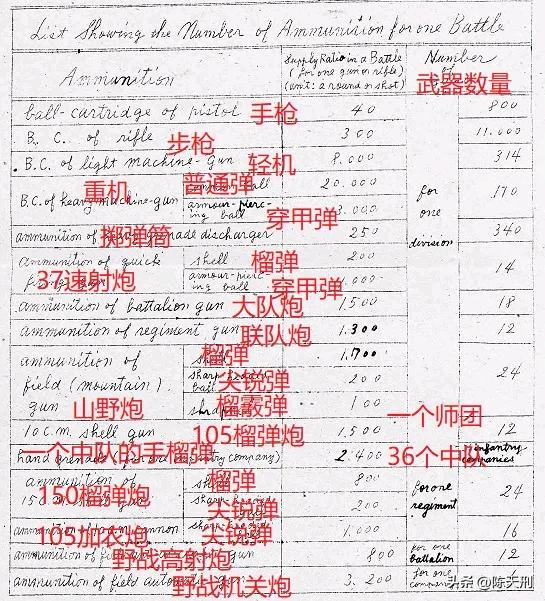 List Showing the Number of Ammunition for one Battle
Ammunition
Supply Ratio in a Battle
(for one gun or rifle)
(unit: a round or shot)
Number
武器数量
ball-cartridge of pistol 手枪 40 800
B. C. of rifle 步枪 300 11.000
B.C. of light machine-gun 轻机 8.000 314
重机 普通弹 ball 20.000
B.C. of heavy machine-gun armour-pierc-ing ball 穿甲弹 3.000 for one division 170
ammunition of 掷弹筒 discharger 250 340
ammunition of quick shell 榴弹 200 14
37速射炮 armour-pierc-ing ball 穿甲弹
ammunition of battalion gun 大队炮 1.500 18
ammunition of regiment gun 联队炮 1.300 12
ammunition of 榴弹 1.700
field (mountain) ball 尖锐弹 200 24
gun 山野炮 榴霰弹 100 一个师团
10 c.m. shell gun 105榴弹炮 1.500 12
一个中队的手榴弹 company) 2.400 36个中队 infantry companies
ammunition of 榴弹 800 for one regiment 24
150榴弹炮 尖锐弹 200
105加农炮 cannon 尖锐弹 1.000 16
ammunition of field 野战高射炮 gun 800 for one battalion 12
ammunition of field 野战机关炮 3.200 for one
头条 @陈天刑